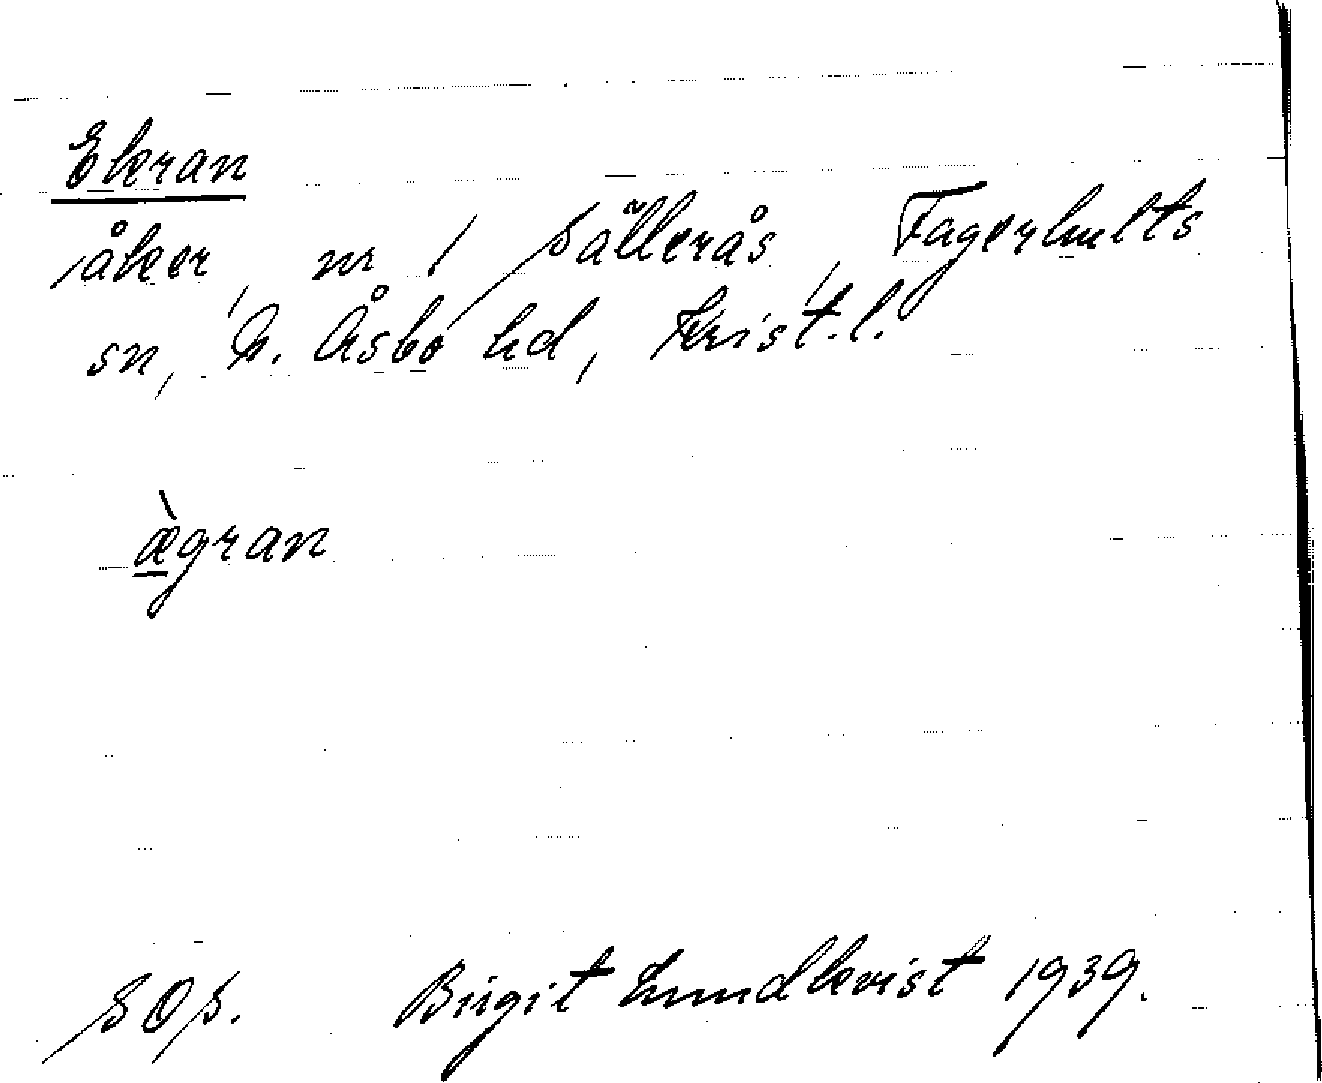 Ekran
åker, nr 1 Sällerås, Fagerhults
sn, N. Åsbo hd, Krist. l.
æ̀gran
SOS. Birgit Lundkvist 1939.